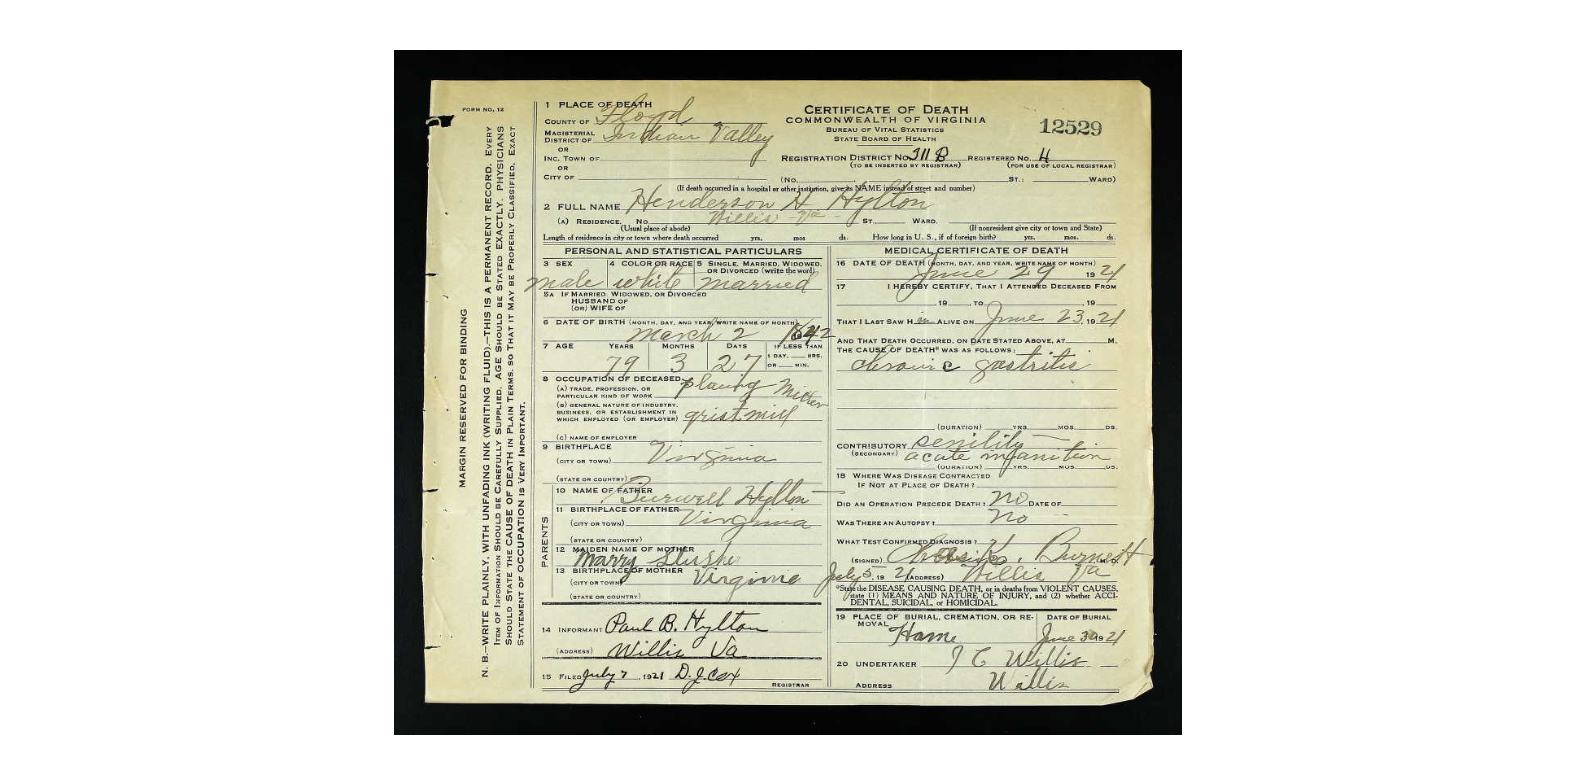 FORM NO. 12
MARGIN RESERVED FOR BINDING
N. B.—WRITE PLAINLY, WITH UNFADING INK (WRITING FLUID).—THIS IS A PERMANENT RECORD. EVERY
ITEM OF INFORMATION SHOULD BE CAREFULLY SUPPLIED. AGE SHOULD BE STATED EXACTLY. PHYSICIANS
SHOULD STATE THE CAUSE OF DEATH IN PLAIN TERMS, SO THAT IT MAY BE PROPERLY CLASSIFIED. EXACT
STATEMENT OF OCCUPATION IS VERY IMPORTANT.
1 PLACE OF DEATH
COUNTY OF Floyd
MAGISTERIAL DISTRICT OF Indian Valley
OR
INC. TOWN OF
OR
CITY OF
CERTIFICATE OF DEATH
COMMONWEALTH OF VIRGINIA
BUREAU OF VITAL STATISTICS
STATE BOARD OF HEALTH
12529
REGISTRATION DISTRICT NO. 311 B REGISTERED NO. 4
(TO BE INSERTED BY REGISTRAR) (FOR USE OF LOCAL REGISTRAR)
(NO. ST.; WARD)
(If death occurred in a hospital or other institution, give its NAME instead of street and number)
2 FULL NAME Henderson H Hylton
(A) RESIDENCE. No. Willis Va ST. WARD.
(Usual place of abode) (If nonresident give city or town and State)
Length of residence in city or town where death occurred yrs. mos. ds. How long in U. S., if of foreign birth? yrs. mos. ds.
PERSONAL AND STATISTICAL PARTICULARS
3 SEX 4 COLOR OR RACE 5 SINGLE, MARRIED, WIDOWED, OR DIVORCED (write the word)
male white married
5A IF MARRIED, WIDOWED, OR DIVORCED
HUSBAND OF
(OR) WIFE OF
6 DATE OF BIRTH (MONTH, DAY, AND YEAR, WRITE NAME OF MONTH)
March 2 1842
7 AGE YEARS MONTHS DAYS IF LESS THAN
1 DAY, HRS.
OR MIN.
79 3 27
8 OCCUPATION OF DECEASED
(A) TRADE, PROFESSION, OR PARTICULAR KIND OF WORK Miller
(B) GENERAL NATURE OF INDUSTRY, BUSINESS, OR ESTABLISHMENT IN WHICH EMPLOYED (OR EMPLOYER) grist mill
(C) NAME OF EMPLOYER
9 BIRTHPLACE
(CITY OR TOWN) Virginia
(STATE OR COUNTRY)
PARENTS
10 NAME OF FATHER Burwell Hylton
11 BIRTHPLACE OF FATHER
(CITY OR TOWN) Virginia
(STATE OR COUNTRY)
12 MAIDEN NAME OF MOTHER
Marry Slusher
13 BIRTHPLACE OF MOTHER
(CITY OR TOWN) Virginia
(STATE OR COUNTRY)
14 INFORMANT Paul B. Hylton
(ADDRESS) Willis Va
15 FILED July 7, 1921 D. J. Cox
REGISTRAR
MEDICAL CERTIFICATE OF DEATH
16 DATE OF DEATH (MONTH, DAY, AND YEAR, WRITE NAME OF MONTH)
June 29 1921
17 I HEREBY CERTIFY, THAT I ATTENDED DECEASED FROM
, 19 , TO , 19
THAT I LAST SAW H im ALIVE ON June 23, 1921
AND THAT DEATH OCCURRED, ON DATE STATED ABOVE, AT M.
THE CAUSE OF DEATH* WAS AS FOLLOWS:
chronic gastritis
(DURATION) YRS. MOS. DS.
CONTRIBUTORY senility
(SECONDARY) acute inanition
(DURATION) YRS. MOS. DS.
18 WHERE WAS DISEASE CONTRACTED
IF NOT AT PLACE OF DEATH?
DID AN OPERATION PRECEDE DEATH? no DATE OF
WAS THERE AN AUTOPSY? no
WHAT TEST CONFIRMED DIAGNOSIS?
(SIGNED) Burnett M. D.
July 5, 1921 (ADDRESS) Willis Va
*State the DISEASE CAUSING DEATH, or in deaths from VIOLENT CAUSES,
state (1) MEANS AND NATURE OF INJURY, and (2) whether ACCI-
DENTAL, SUICIDAL, or HOMICIDAL.
19 PLACE OF BURIAL, CREMATION, OR RE-MOVAL DATE OF BURIAL
Home June 30 1921
20 UNDERTAKER J C Willis
ADDRESS Willis